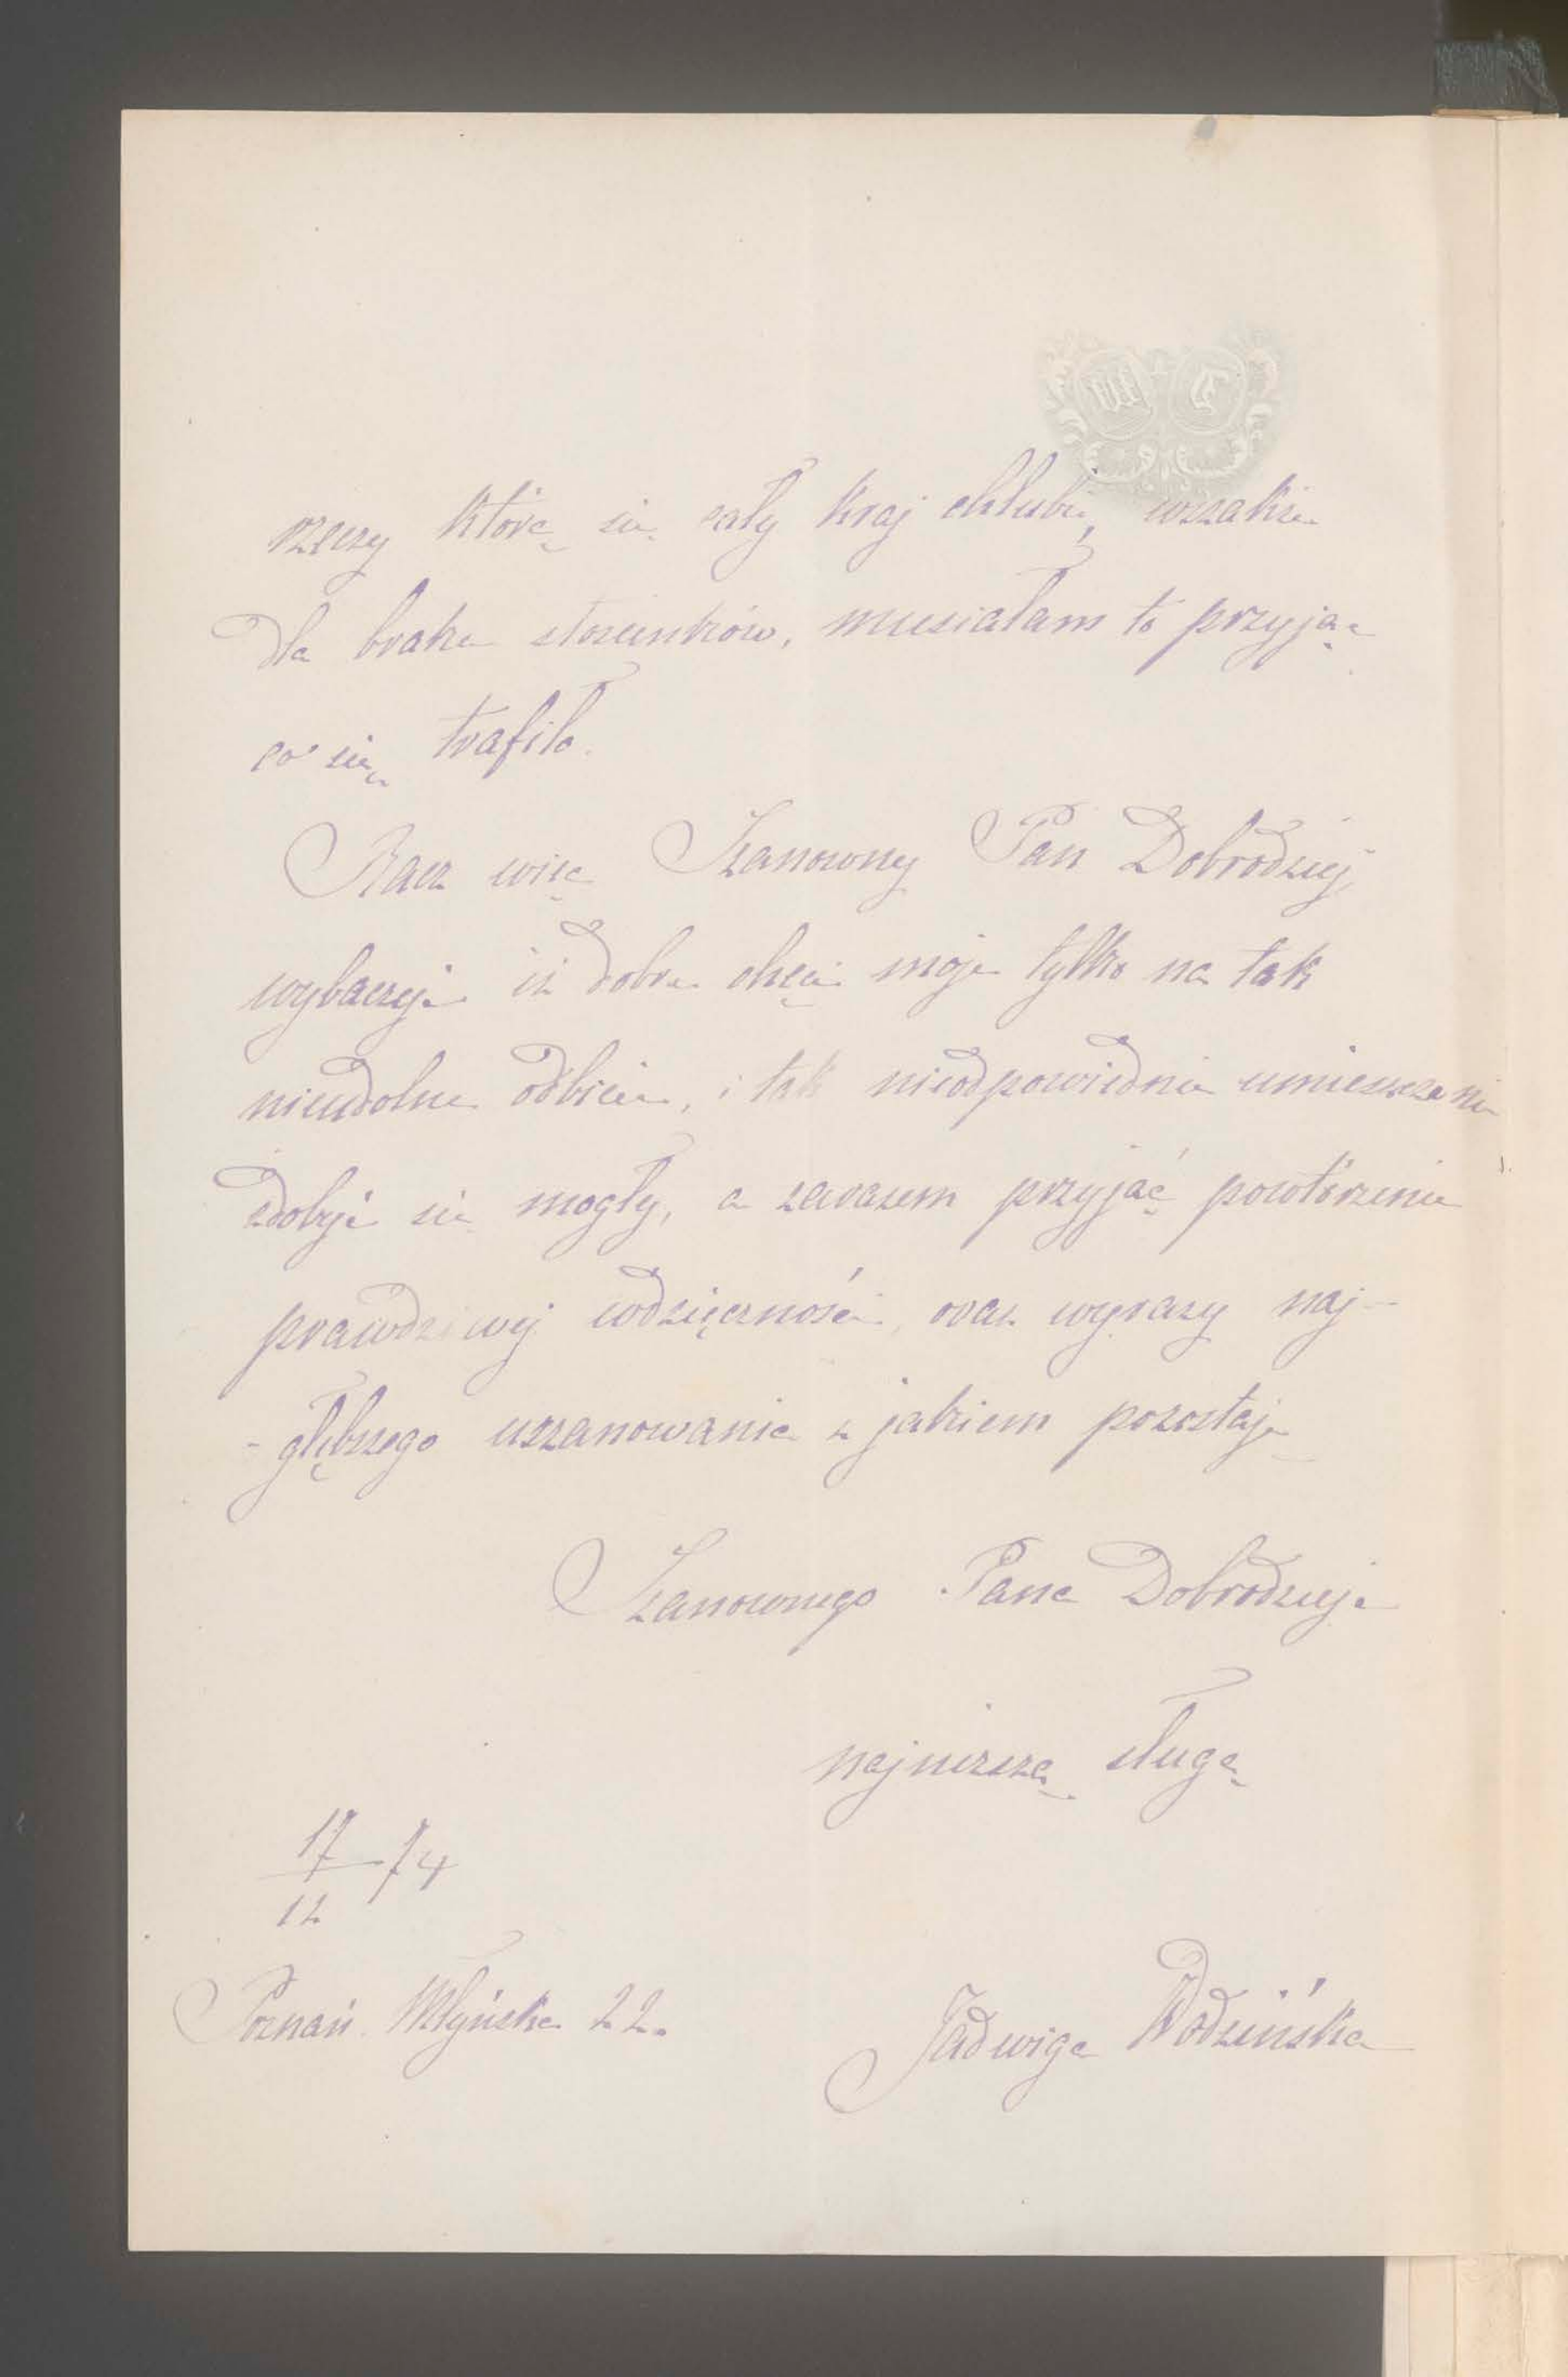 rzeczy którą się cały kraj chlubi, wszakże
dla braku stosunków, musiałam to przyjąć
co się trafiło.
Racz więc Szanowny Pan Dobrodziej
wybaczyć iż dobre chęci moje tylko na tak
nieudolne odbicie, i tak nieodpowiednie umieszczenie
zdobyć się mogły, a zarazem przyjąć powtórzenie
prawdziwej wdzięczności, oraz wyrazy naj-
- głębszego uszanowania z jakiem pozostaję
Szanownego Pana Dobrodzieja
najniższą sługą
17/12 74
Poznań Młyńska 22.
Jadwiga Wodzińska